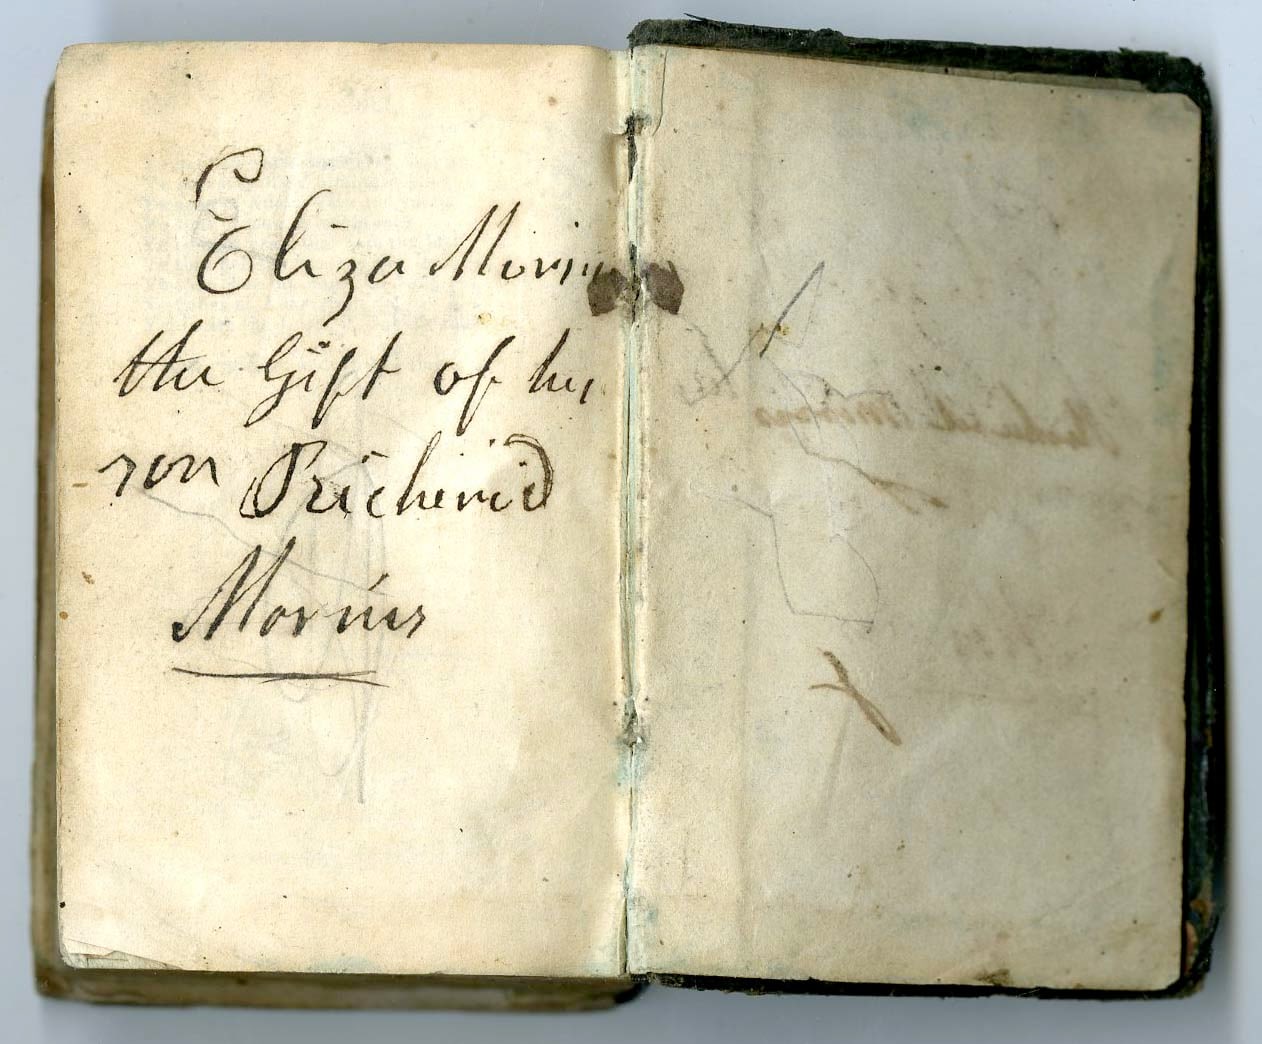 Eliza Morris
the Gift of her
son Richerid
Morris